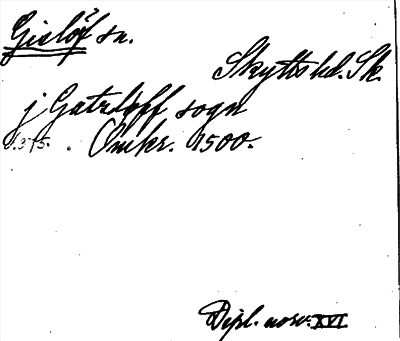 Gislöf sn.
Skytts hd. Sk.
j Gatzløff sogn
s. 375. Omkr. 1500.
Dipl. norv. XVI